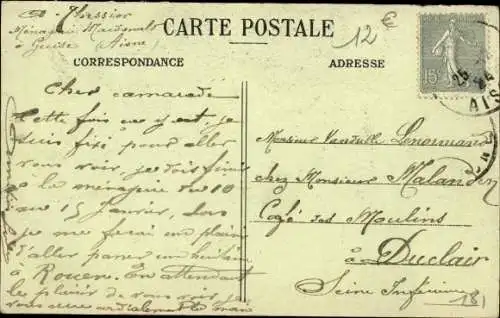 Ménagerie Macdonald
à Guise (Aisne)
CARTE POSTALE
12 €
CORRESPONDANCE
ADRESSE
15
25
24
AIS
Cher camarade
Cette fois ça y est, je
suis fixé pour aller
vous voir, je dois finir
à la ménagerie du 10
au 15 Janvier, donc
je me ferai un plaisir
d'aller passer un huitaine
à Rouen. En attendant
le plaisir de vous voir, je
vous serre cordialement la main
Monsieur Lenormand
chez Monsieur Malandin
Café des Moulins
à Duclair
Seine Inférieure
181